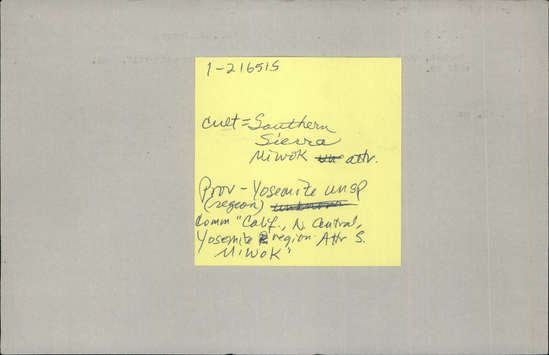 1-216515
cult = Southern
Sierra
Miwok un attr.
Prov - Yosemite unsp
(region) unknown
Comm "Calif., N. Central,
Yosemite region. Attr S.
Miwok"